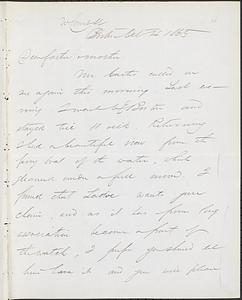 Boston Oct 1865
Dear father & mother
Mr Curtis called on
me again this morning. Last eve-
ning I went to & Boston and
stayed till 10 oclk. Returning
I had a beautiful view from the
ferry boat of the water, which
gleamed under a full moon. I
found that wants your
chain, and as it has from long
association become a part of
the watch, I prefer you should let
him have it and you will please